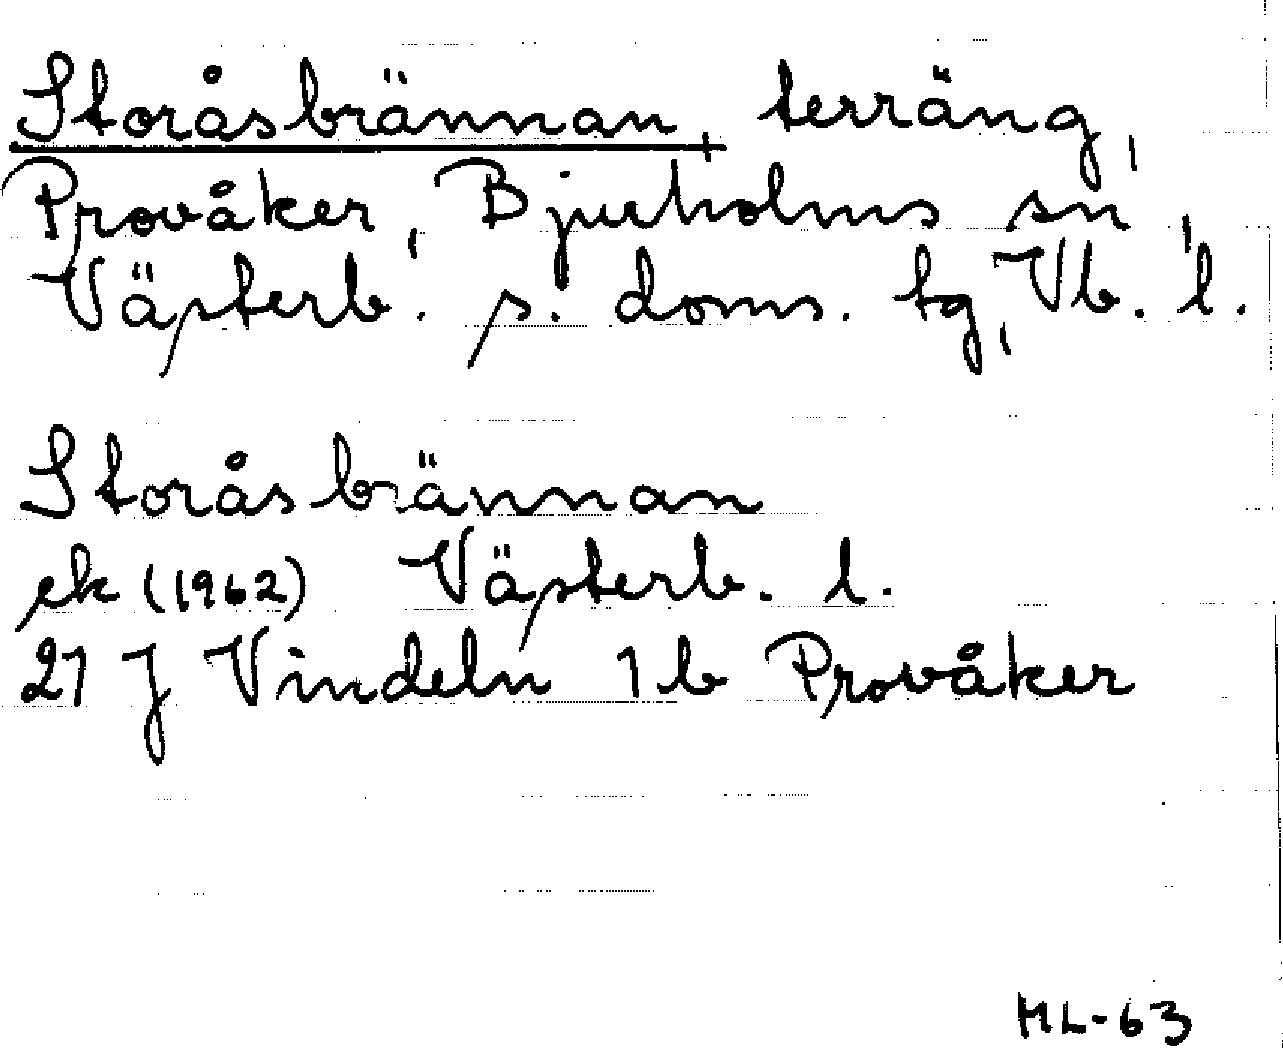 Storåsbrännan, terräng,
Provåker, Bjurholms sn,
Västerb. s. doms. tg, Vb. l.
Storåsbrännan
ek (1962) Västerb. l.
21 J Vindeln 1b Provåker
HL-63